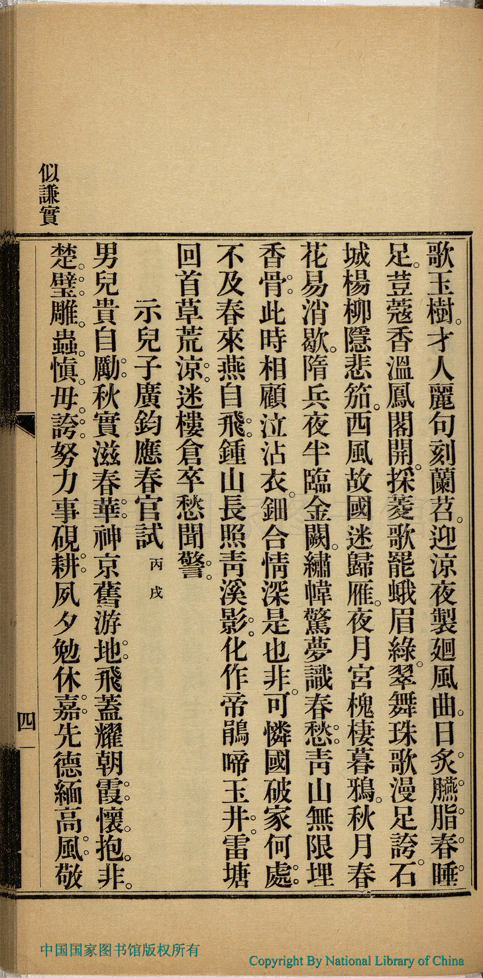 歌玉樹。才人麗句刻蘭苕。迎涼夜製廻風曲。日炙臙脂春睡
足。荳蔻香溫鳳閣開。採菱歌罷蛾眉綠。翠舞珠歌漫足誇。石
城楊柳隱悲笳。西風故國迷歸雁。夜月宮槐棲暮鴉。秋月春
花易消歇。隋兵夜半臨金闕。繡幃驚夢識春愁。靑山無限埋
香骨。此時相顧泣沾衣。鈿合情深是也非。可憐國破家何處。
不及春來燕自飛。鍾山長照靑溪影。化作帝鵑啼玉井。雷塘
回首草荒涼。迷樓倉卒愁聞警。
示兒子廣鈞應春官試 丙戌
男兒貴自勵。秋實滋春華。神京舊游地。飛蓋耀朝霞。懷抱非
楚璧。雕蟲愼毋誇。努力事硯耕。夙夕勉休嘉。先德緬高風。敬
似謙實
四
中国国家图书馆版权所有
Copyright By National Library of China